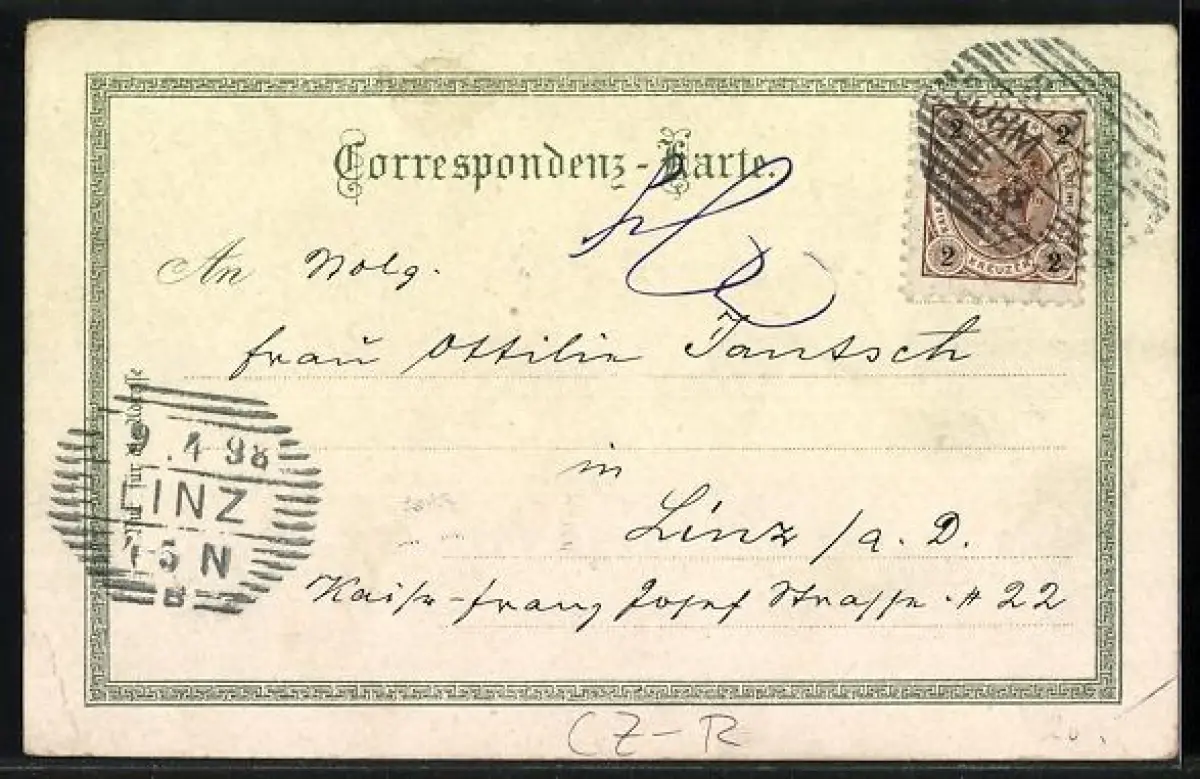 Correspondenz-Karte.
2 2
2 KREUZER 2
An Wolg.
Frau Ottilie Jantsch
in
Linz /a. D.
Kaiser-Franz Josef Strasse # 22
Nur für die Adresse
9.4 98
LINZ
1-5 N
B
CZ-R